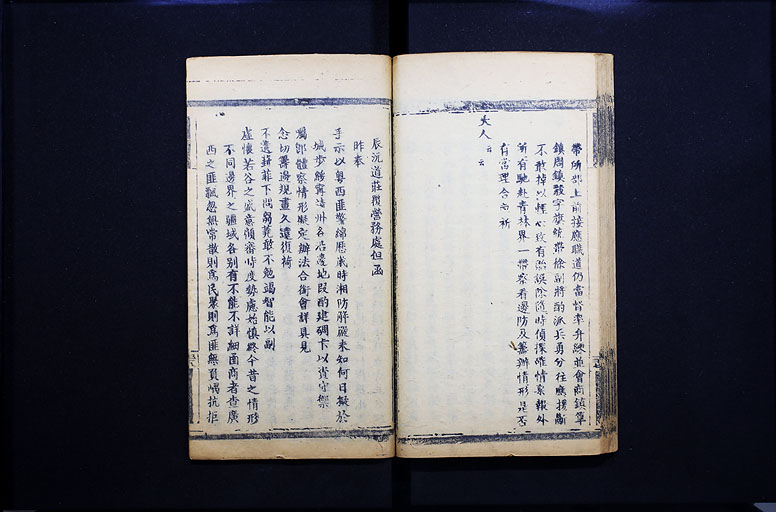 帶所部上前接應職道仍當督率升隊並會商鎮篁
鎮周鎮發字旗統帶徐副將酌派兵勇分往應援斷
不敢掉以輕心致有貽誤除隨時偵探確情稟報外
所有馳赴青林界一帶察看邊防及籌辦情形是否
有當理合函祈
大人云云
辰沅道莊覆營務處但函
昨奉
手示以粵西匪警綿歷歲時湘防得礙未知何日擬於
城步綏寧靖州各沿邊地段酌建碉卡以資守禦
囑即體察情形擬定辦法合銜會詳具見
念切籌邊規畫久遠復荷
不遺葑菲下問芻蕘敢不勉竭智能以副
虛懷若谷之盛意顧審時度勢慮始慎終今昔之情形
不同邊界之疆域各別有不能不詳細函商者查廣
西之匪飄忽無常散則為民聚則為匪無負嵎抗拒